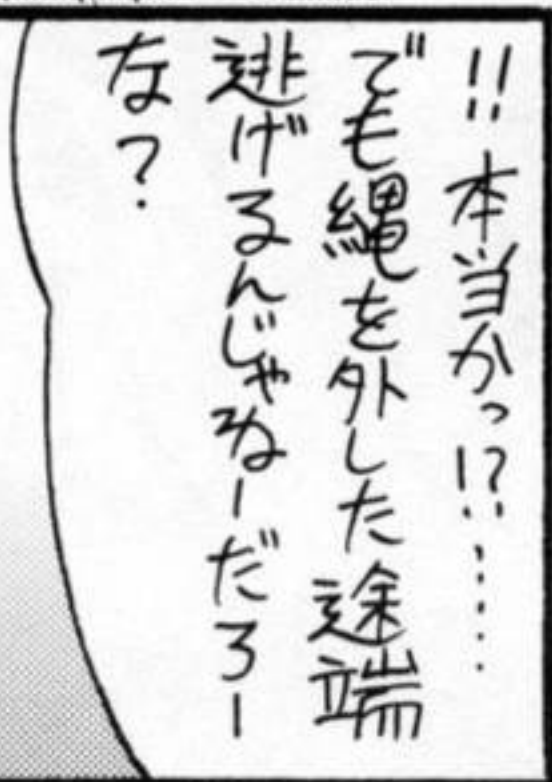 !!本当かっ!?……
でも縄を外した途端
逃げるんじゃねーだろー
な?